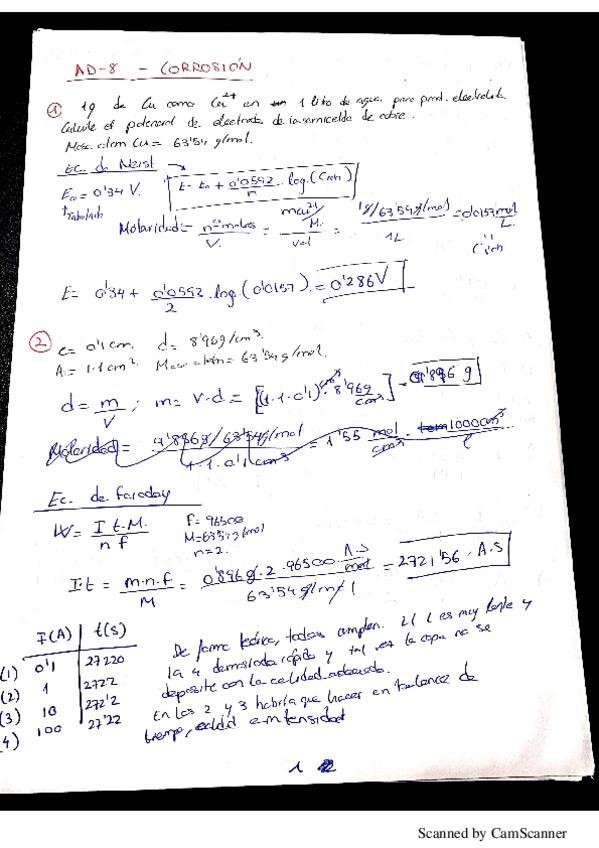 AD-8 - CORROSIÓN
① 1g de Cu como Cu²⁺ en 1 litro de agua para prod. electrolito
Calcule el potencial de electrodo de la semicelda de cobre.
Masa atom Cu = 63'54 g/mol.
Ec. de Nerst
E₀ = 0'34 V.
E = E₀ + 0'0592/n · log (Cion)
Tabulado
Molaridad = nº moles/V. = mcu²⁺/M./Vol = 1g/63'54g/mol/1L = 0'0157 mol/L
Cion
E = 0'34 + 0'0592/2 · log (0'0157) = 0'286V
② e = 0'1 cm. d = 8'96g/cm³.
A = 1·1 cm². Masa atóm = 63'54 g/mol.
d = m/V ; m = V·d = [(1·1·0'1) cm³ · 8'96g/cm³] = 0'896 g
Molaridad = 0'896g/63'54g/mol/1·1·0'1 cm³ = 1'55 mol/cm³ · 1000cm³/L
Ec. de Faraday
W = I t.M./n f
F = 96500
M = 63'54 g/mol
n = 2.
I·t = m·n·f/M = 0'896g · 2 · 96500 A.S/mol/63'54 g/mol = 2721'56 · A.S
I(A) t(s)
(1) 0'1 27220
(2) 1 2722
(3) 10 272'2
(4) 100 27'22
De forma teórica, todas cumplen. La 1 es muy lenta y
la 4 demasiado rápido y tal vez la capa no se
deposite con la calidad adecuada.
En las 2 y 3 habría que hacer en balance de
tiempo, calidad e intensidad
1
Scanned by CamScanner